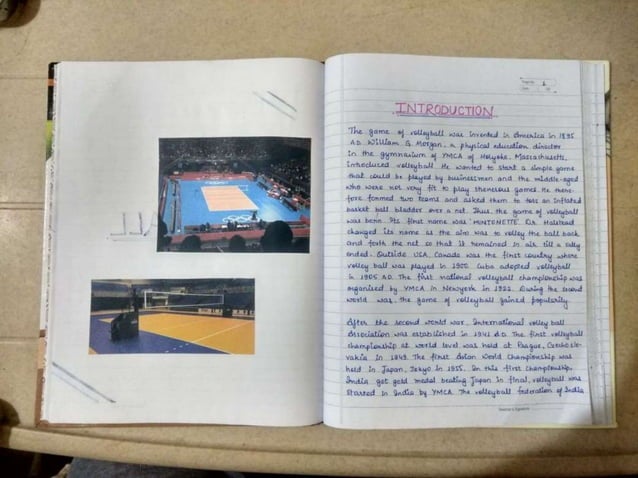 Page No. 1
Date
INTRODUCTION
The game of volleyball was invented in America in 1895
A.D. William. G. Morgan, a physical education director
in the gymnasium of YMCA of Holyoke, Massachusetts,
introduced volleyball. He wanted to start a simple game
that could be played by businessmen and the middle-aged
who were not very fit to play strenuous games. He there-
fore formed two teams and asked them to toss an inflated
basket ball bladder over a net. Thus, the game of volleyball
was born. Its first name was 'MINTONETTE'. Dr. Halstead
changed its name as the aim was to volley the ball back
and forth the net so that it remained in air till a rally
ended. Outside USA, Canada was the first country where
volley ball was played in 1900. Cuba adopted volleyball
in 1906 A.D. The first national volleyball championship was
organized by YMCA in Newyork in 1922. During the second
world war, the game of volleyball gained popularity.
After the second world war, International volley ball
Association was established in 1947 A.D. The first volleyball
championship at world level was held at Prague, Czechoslo-
vakia in 1949. The first Asian World Championship was
held in Japan, Tokyo in 1955. In this first championship,
India got gold medal beating Japan in final, volleyball was
started in India by YMCA. The volleyball federation of India
Teacher's Signature